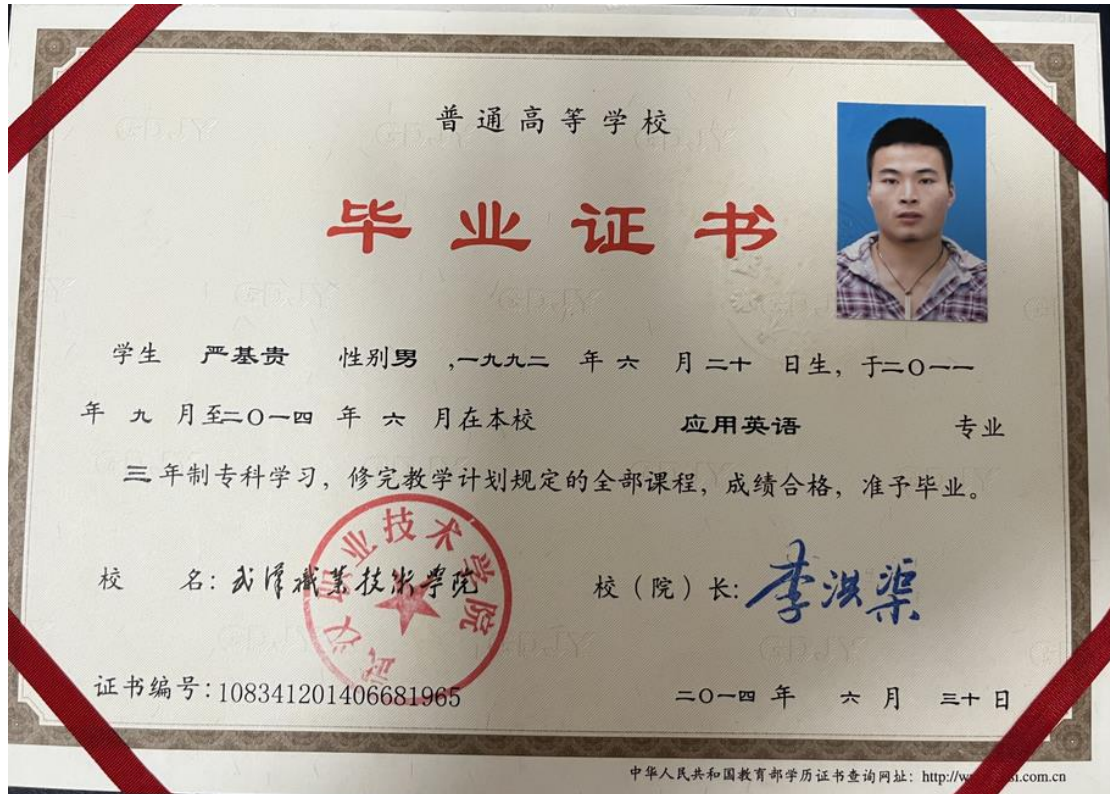 普通高等学校
毕业证书
学生 严基贵 性别男 ,一九九二 年 六 月 二十 日生, 于二〇一一
年 九 月至二〇一四 年 六 月在本校 应用英语 专业
三 年制专科学习, 修完教学计划规定的全部课程, 成绩合格, 准予毕业。
校 名: 武漢職業技術學院
武汉职业技术学院
校（院）长: 李洪渠
证书编号: 108341201406681965
二〇一四 年 六 月 三十 日
中华人民共和国教育部学历证书查询网址: http://w si.com.cn